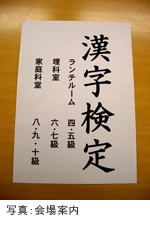 漢字検定
ランチルーム 四・五級
理科室 六・七級
家庭科室 八・九・十級
写真:会場案内